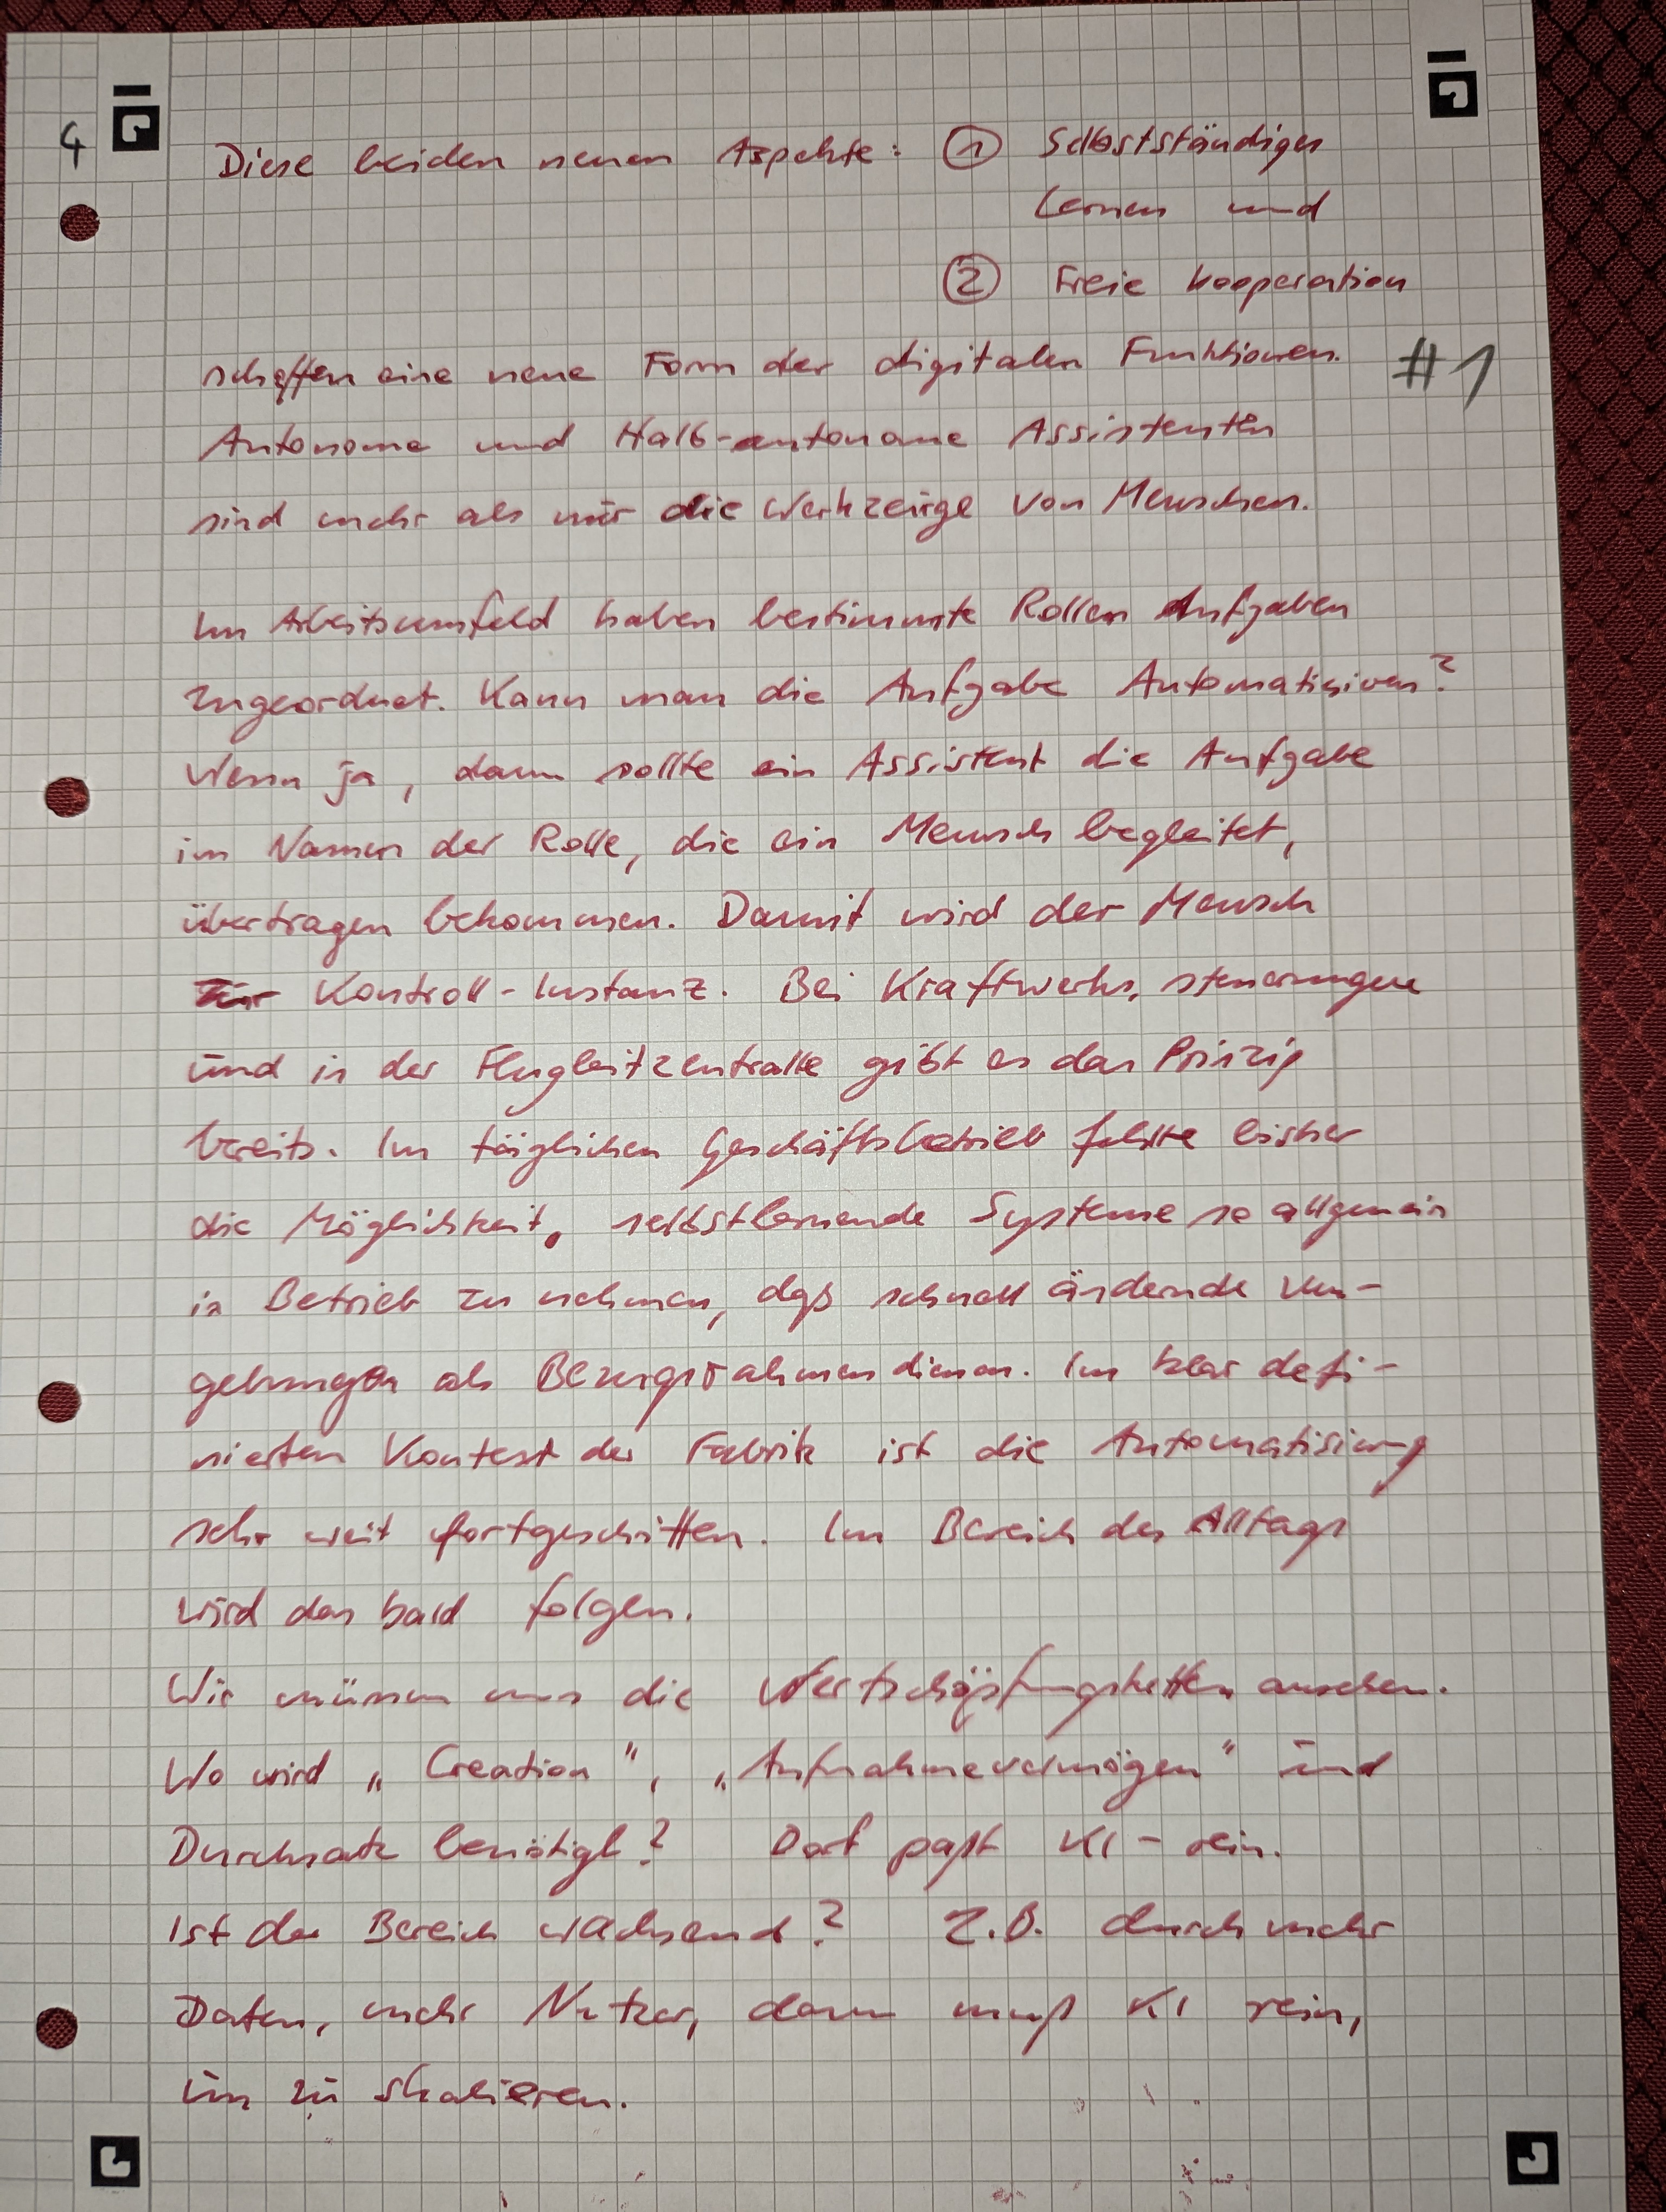 4
Diese beiden neuen Aspekte: ① Selbstständiges
Lernen und
② Freie Kooperation
schaffen eine neue Form der digitalen Funktionen. #1
Autonome und Halb-autonome Assistenten
sind mehr als nur die Werkzeuge von Menschen.
Im Arbeitsumfeld haben bestimmte Rollen Aufgaben
zugeordnet. Kann man die Aufgabe Automatisieren?
Wenn ja, dann sollte ein Assistent die Aufgabe
im Namen der Rolle, die ein Mensch begleitet,
übertragen bekommen. Damit wird der Mensch
zur Kontroll-Instanz. Bei Kraftwerks, steuerungen
und in der Flugleitzentralle gibt es das Prinzip
bereits. Im täglichen Geschäftsbetrieb fehlte bisher
die Möglichkeit, selbstlernende Systeme so allgemein
in Betrieb zu nehmen, daß schnell ändernde Um-
gebungen als Bezugsrahmen dienen. Im klar defi-
nierten Kontext der Fabrik ist die Automatisierung
sehr weit fortgeschritten. Im Bereich des Alltags
wird das bald folgen.
Wir müssen uns die Wertschöpfungsketten ansehen.
Wo wird „Creation", „Aufnahmevermögen" und
Durchsatz benötigt? Dort paßt KI-rein.
Ist der Bereich wachsend? Z.B. durch mehr
Daten, mehr Nutzer, dann muß KI rein,
um zu skalieren.